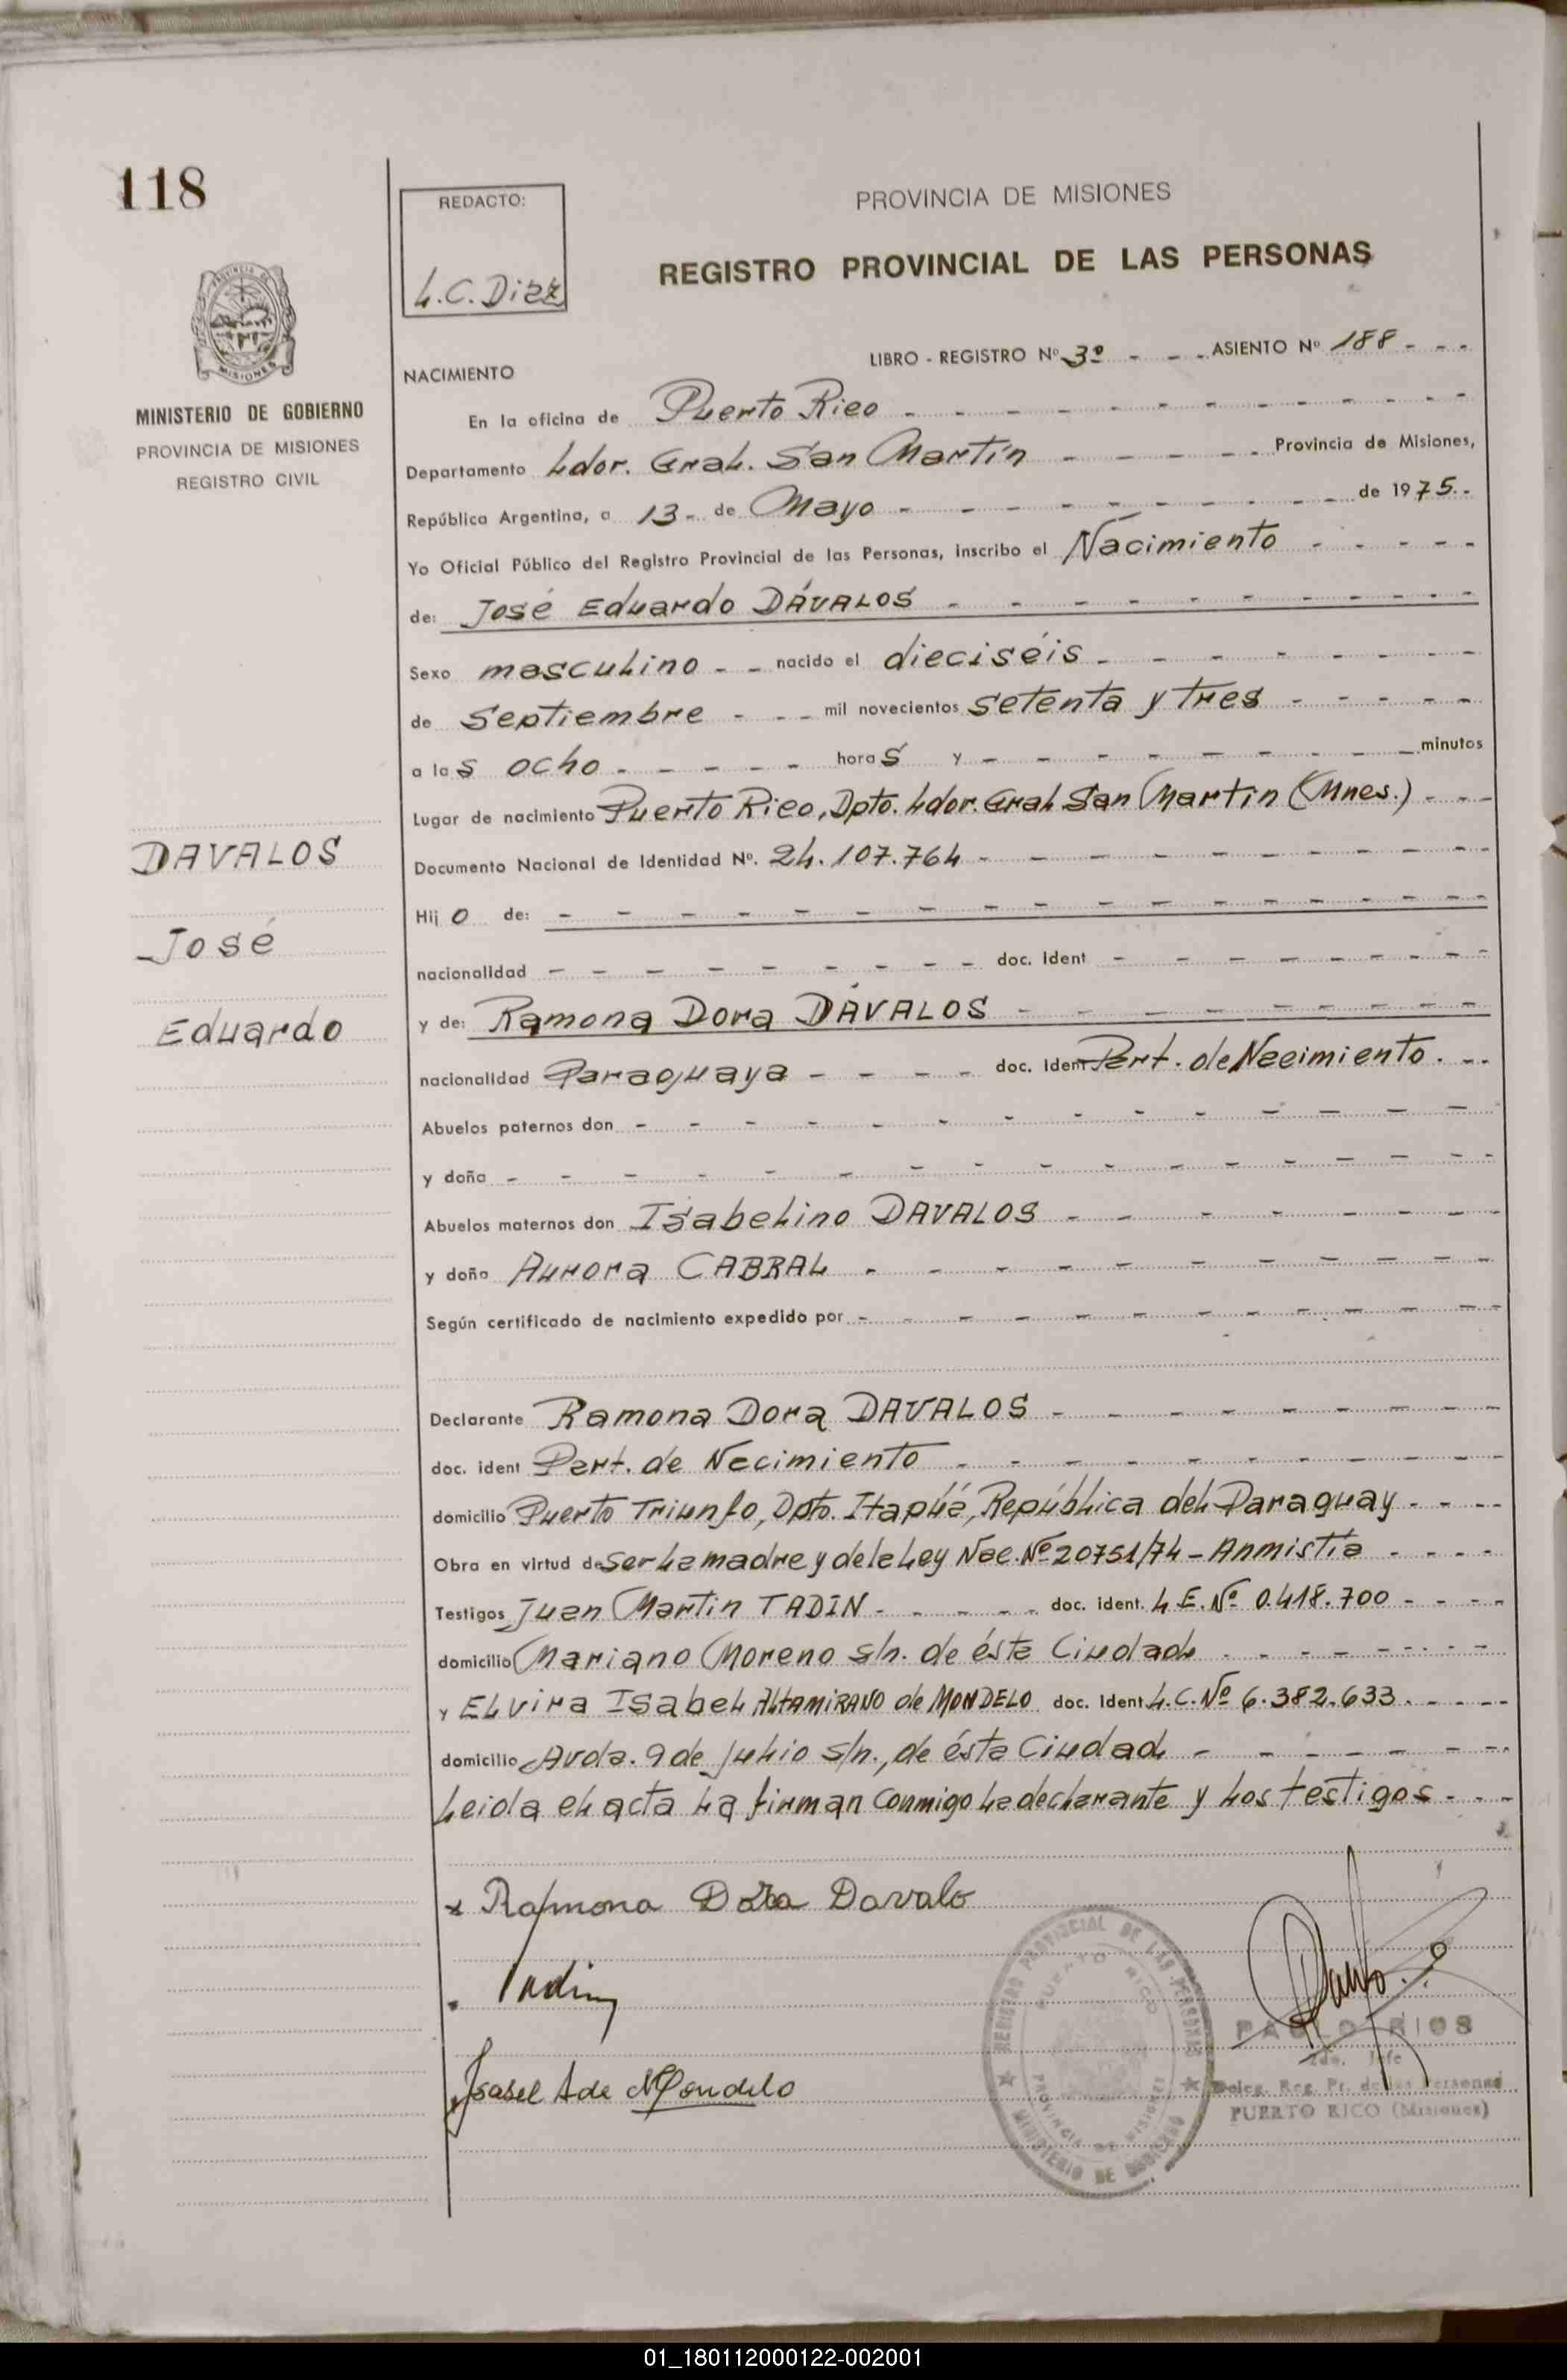 118
REDACTO:
L.C. Diaz
PROVINCIA DE MISIONES
REGISTRO PROVINCIAL DE LAS PERSONAS
PROVINCIA DE MISIONES
MINISTERIO DE GOBIERNO
PROVINCIA DE MISIONES
REGISTRO CIVIL
LIBRO - REGISTRO Nº 3º - - - ASIENTO Nº 188 - - -
NACIMIENTO
En la oficina de Puerto Rico
Departamento Ldor. Gral. San Martín Provincia de Misiones,
República Argentina, a 13- de Mayo - de 1975.-
Yo Oficial Público del Registro Provincial de las Personas, inscribo el Nacimiento
de: José Eduardo DÁVALOS
Sexo masculino - - nacido el dieciséis
de Septiembre - - - mil novecientos setenta y tres
a las ocho - horas y - minutos
Lugar de nacimiento Puerto Rico, Dpto. Ldor. Gral San Martín (Mnes.)
Documento Nacional de Identidad Nº. 24.107.764
Hijo de: -
nacionalidad - doc. ident -
y de: Ramona Dora DÁVALOS
nacionalidad Paraguaya - doc. ident Part. de Nacimiento.
Abuelos paternos don -
y doña -
Abuelos maternos don Isabelino DAVALOS
y doña Aurora CABRAL
Según certificado de nacimiento expedido por -
Declarante Ramona Dora DAVALOS
doc. ident Part. de Nacimiento
domicilio Puerto Triunfo, Dpto. Itapúa, República del Paraguay
Obra en virtud de ser la madre y de la Ley Nac. Nº 20751/74 - Anmistía
Testigos Juan Martin TADIN - doc. ident. L.E. Nº 0.418.700
domicilio Mariano Moreno s/n. de ésta Ciudad
y Elvira Isabel ALTAMIRANO de MONDELO doc. ident. L.C. Nº 6.382.633.
domicilio Avda. 9 de Julio s/n., de ésta Ciudad
Leida el acta la firman conmigo la declarante y los testigos
DAVALOS
José
Eduardo
x Ramona Dora Davalo
Tadin
Isabel A de Mondelo
REGISTRO PROVINCIAL DE LAS PERSONAS
PUERTO RICO
PROVINCIA DE MISIONES
MINISTERIO DE GOBIERNO
PABLO RIOS
2do. Jefe
Deleg. Reg. Pr. de las Personas
PUERTO RICO (Misiones)
01_180112000122-002001